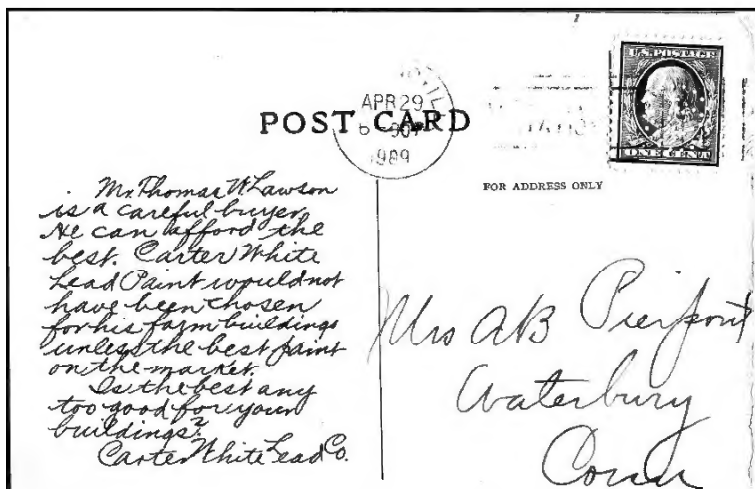 U.S. POSTAGE
ONE CENT
APR 29
1989
POST CARD
FOR ADDRESS ONLY
Mr. Thomas W. Lawson
is a careful buyer.
He can afford the
best. Carter White
Lead Paint would not
have been chosen
for his farm buildings
unless the best paint
on the market.
Is the best any
too good for your
buildings?
Carter White Lead Co.
Mrs AB Pierpont
Waterbury
Conn